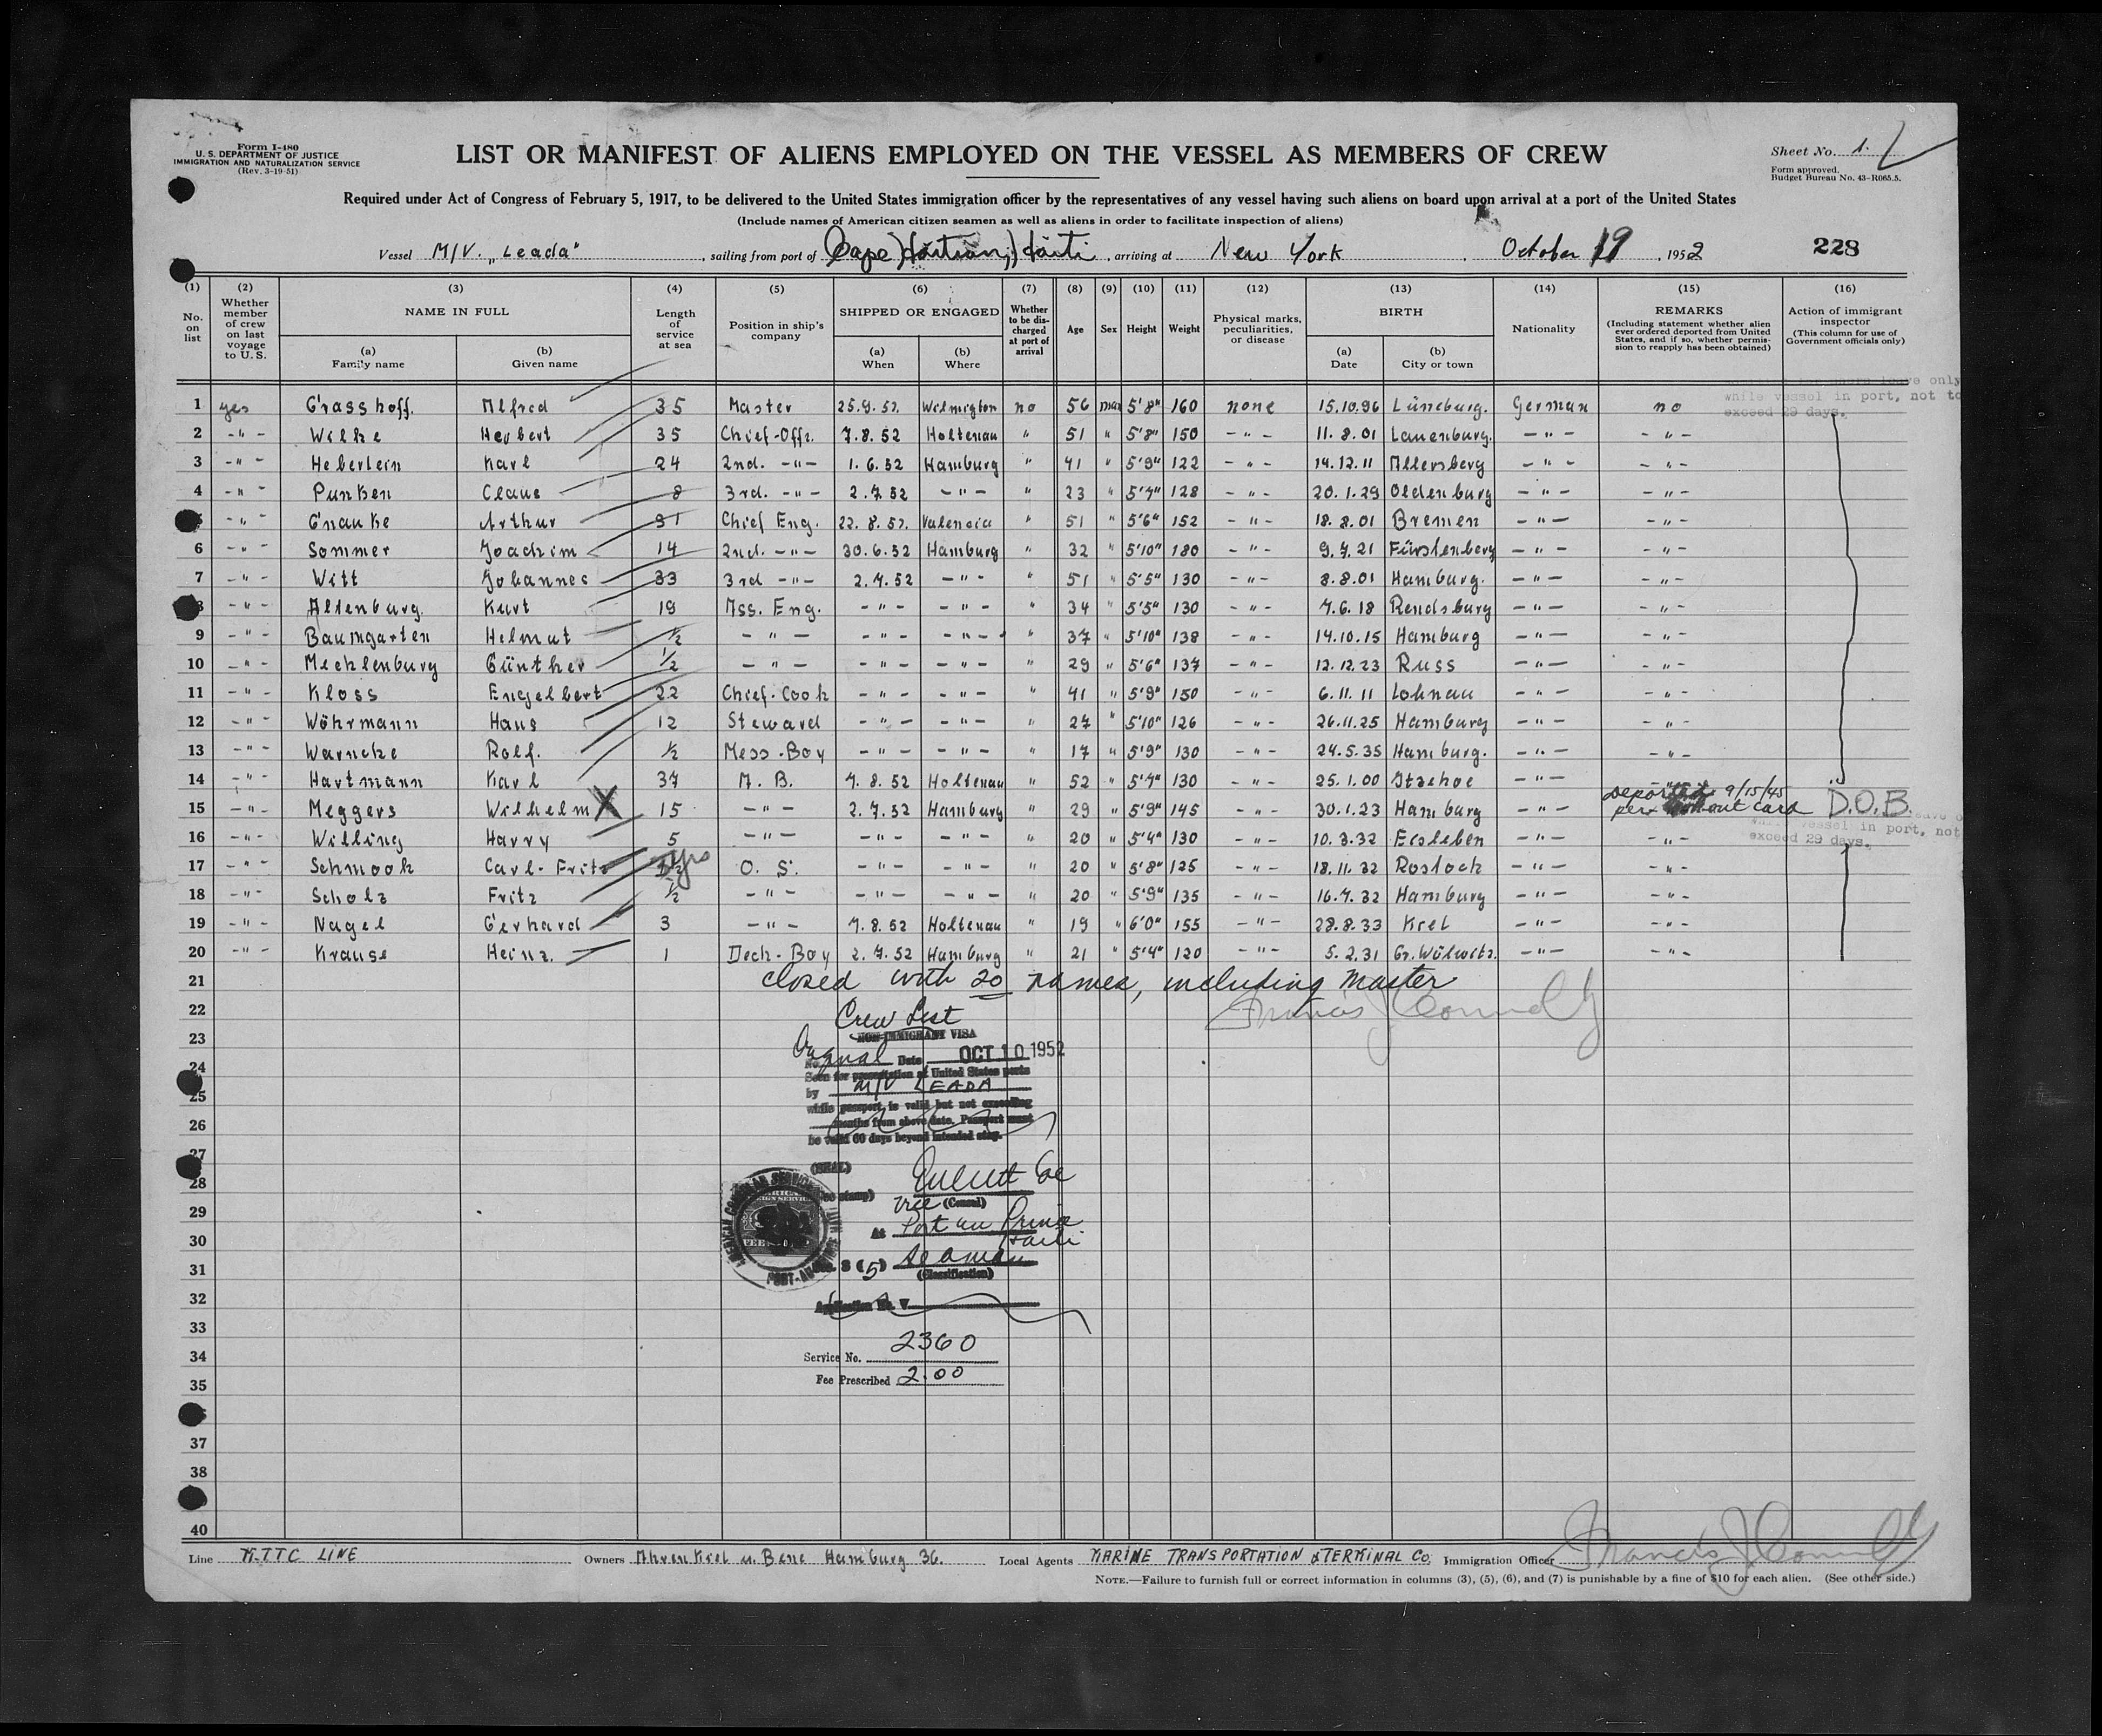 Form I-480
U. S. DEPARTMENT OF JUSTICE
IMMIGRATION AND NATURALIZATION SERVICE
(Rev. 3-19-51)
LIST OR MANIFEST OF ALIENS EMPLOYED ON THE VESSEL AS MEMBERS OF CREW
Sheet No. 1.
Form approved.
Budget Bureau No. 43-R065.5.
Required under Act of Congress of February 5, 1917, to be delivered to the United States immigration officer by the representatives of any vessel having such aliens on board upon arrival at a port of the United States
(Include names of American citizen seamen as well as aliens in order to facilitate inspection of aliens)
Vessel M/V. „Leada" , sailing from port of Cape Haitian, Haiti , arriving at New York , October 19 , 1952 228
(1) No. on list (2) Whether member of crew on last voyage to U. S. (3) NAME IN FULL (a) Family name (b) Given name (4) Length of service at sea (5) Position in ship's company (6) SHIPPED OR ENGAGED (a) When (b) Where (7) Whether to be discharged at port of arrival (8) Age (9) Sex (10) Height (11) Weight (12) Physical marks, peculiarities, or disease (13) BIRTH (a) Date (b) City or town (14) Nationality (15) REMARKS (Including statement whether alien ever ordered deported from United States, and if so, whether permission to reapply has been obtained) (16) Action of immigrant inspector (This column for use of Government officials only)
leave only
while vessel in port, not to
exceed 29 days.
1 yes Grasshoff. Alfred 35 Master 25.9.52. Wilmington no 56 man 5'8" 160 none 15.10.96 Lüneburg. German no
2 -"- Wilke Herbert 35 Chief-Offz. 7.8.52 Holtenau " 51 " 5'8" 150 -"- 11.8.01 Lauenburg. -"- -"-
3 -"- Heberlein Karl 24 2nd. -"- 1.6.52 Hamburg " 41 " 5'9" 122 -"- 14.12.11 Allersberg -"- -"-
4 -"- Punken Claus 8 3rd. -"- 2.7.52 -"- " 23 " 5'7" 128 -"- 20.1.29 Oldenburg -"- -"-
-"- Gnauke Arthur 31 Chief Eng. 22.8.52. Valencia " 51 " 5'6" 152 -"- 18.8.01 Bremen -"- -"-
6 -"- Sommer Joachim 14 2nd. -"- 30.6.52 Hamburg " 32 " 5'10" 180 -"- 9.7.21 Fürstenberg -"- -"-
7 -"- Witt Johannes 33 3rd -"- 2.7.52 -"- " 51 " 5'5" 130 -"- 8.8.01 Hamburg. -"- -"-
8 -"- Altenburg. Kurt 19 Ass. Eng. -"- -"- " 34 " 5'5" 130 -"- 7.6.18 Rendsburg -"- -"-
9 -"- Baumgarten Helmut ½ -"- -"- -"- " 37 " 5'10" 138 -"- 14.10.15 Hamburg -"- -"-
10 -"- Mecklenburg Günther ½ -"- -"- -"- " 29 " 5'6" 137 -"- 12.12.23 Russ -"- -"-
11 -"- Kloss Engelbert 22 Chief-Cook -"- -"- " 41 " 5'9" 150 -"- 6.11.11 Lohnau -"- -"-
12 -"- Wöhrmann Hans 12 Steward -"- -"- " 27 " 5'10" 126 -"- 26.11.25 Hamburg -"- -"-
13 -"- Warncke Rolf. ½ Mess-Boy -"- -"- " 17 " 5'9" 130 -"- 24.5.35 Hamburg. -"- -"-
14 -"- Hartmann Karl 37 A. B. 7.8.52 Holtenau " 52 " 5'7" 130 -"- 25.1.00 Itzehoe -"- -"-
15 -"- Meggers Wilhelm X 15 -"- 2.7.52 Hamburg " 29 " 5'9" 145 -"- 30.1.23 Hamburg -"- Deported 9/15/45 per out card D.O.B.
16 -"- Willing Harry 5 -"- -"- -"- " 20 " 5'4" 130 -"- 10.3.32 Ecsleben -"- -"-
vessel in port, not
exceed 29 days.
17 -"- Schmook Carl-Fritz yrs O. S. -"- -"- " 20 " 5'8" 125 -"- 18.11.32 Rostock -"- -"-
18 -"- Scholz Fritz ½ -"- -"- -"- " 20 " 5'9" 135 -"- 16.7.32 Hamburg -"- -"-
19 -"- Nagel Gerhard 3 -"- 7.8.52 Holtenau " 19 " 6'0" 155 -"- 28.8.33 Krel -"- -"-
20 -"- Krause Heinz. 1 Deck-Boy 2.7.52 Hamburg " 21 " 5'4" 120 -"- 5.2.31 Gr. Wülwitz. -"- -"-
21 closed with 20 names, including Master
22 Crew List Francis J Connolly
23 NON-IMMIGRANT VISA
24 Original Date OCT 10 1952
Seen for presentation at United States ports
25 by M/V LEADA
while passport is valid but not exceeding
26 months from above date. Passport must
be valid 60 days beyond intended stay.
27 (SEAL)
28 Vice (Consul)
29 At Port au Prince
30 Haiti
31 3 (5) Seaman
(Classification)
32 Application No. V
33
34 Service No. 2360
35 Fee Prescribed 2.00
37
38
40
Line K.T.T.C LINE Owners Ahrenkiel u. Bene Hamburg 36. Local Agents MARINE TRANSPORTATION & TERMINAL Co. Immigration Officer Francis J Connolly
NOTE.—Failure to furnish full or correct information in columns (3), (5), (6), and (7) is punishable by a fine of $10 for each alien. (See other side.)